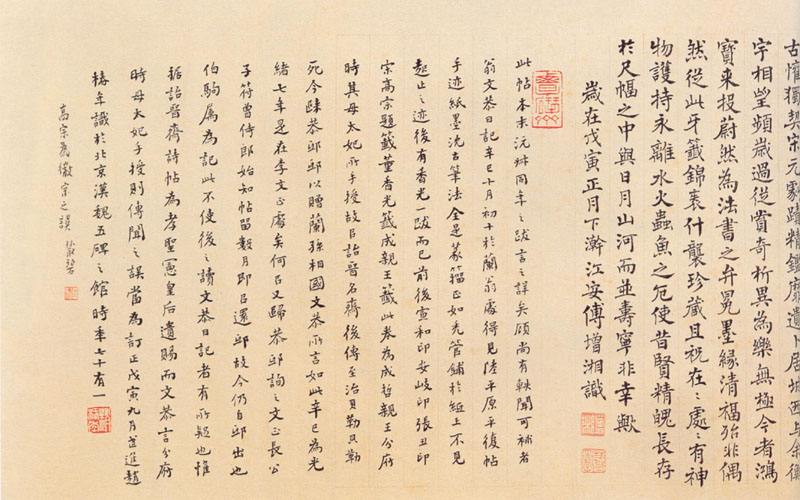 古懽獨契宋元劇蹟精鑑靡遺卜居城西與余衡
宇相望頻歲過從賞奇析異為樂無極今者鴻
寶來投蔚然為法書之弁冕墨緣清福殆非偶
然從此牙籤錦裹什襲珍藏且祝在:處:有神
物護持永離水火蟲魚之厄使昔賢精魄長存
於尺幅之中與日月山河而並壽寧非幸歟
歲在戊寅正月下澣江安傅增湘識
此帖本末沅叔同年之跋言之詳矣顧尚有軼聞可補者
翁文恭日記辛巳十月初十於蘭翁處得見陸平原平復帖
手迹紙墨沈古筆法全是篆籀正如禿管鋪於紙上不見
起止之迹後有香光一跋而已前後宣和印安岐印張丑印
宋高宗題籤董香光籤成親王籤此卷為成哲親王分府
時其母太妃所手授故以詒晉名齋後傳至治貝勒貝勒
死今歸恭邸邸以贈蘭孫相國文恭所言如此辛巳為光
緒七年是在李文正處矣何以又歸恭邸詢之文正長公
子符曾侍郎始知帖留數月即以還邸故今仍自邸出也
伯駒屬為記此不使後之讀文恭日記者有所疑也惟
據詒晉齋詩帖為孝聖憲皇后遺賜而文恭言分府
時母太妃手授則傳聞之誤當為訂正戊寅九月武進趙
椿年識於北京漢魏五碑之館時年七十有一
高宗為徽宗之誤 叢碧